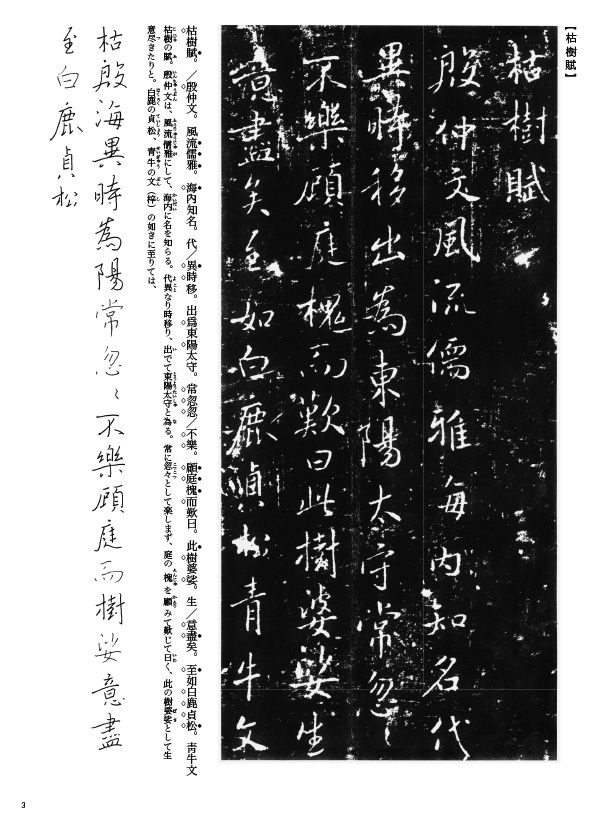 【枯樹賦】
枯樹賦
殷仲文風流儒雅海内知名代
異時移出為東陽太守常忽〻
不樂顧庭槐而歎曰此樹婆娑生
意盡矣至如白鹿貞松青牛文
枯樹賦。／殷仲文。風流儒雅。海内知名。代／異時移。出爲東陽太守。常忽忽／不樂。顧庭槐而歎曰。此樹婆娑。生／意盡矣。至如白鹿貞松。青牛文
枯樹の賦。殷仲文は、風流儒雅にして、海内に名を知らる。代異なり時移り、出でて東陽太守と為る。常に忽々として楽しまず、庭の槐を顧みて歎じて曰く、此の樹婆娑として生
意尽きたりと。白鹿の貞松、青牛の文（梓）の如きに至りては、
枯殷海異時為陽常忽〻不樂顧庭而樹娑意盡
至白鹿貞松
3